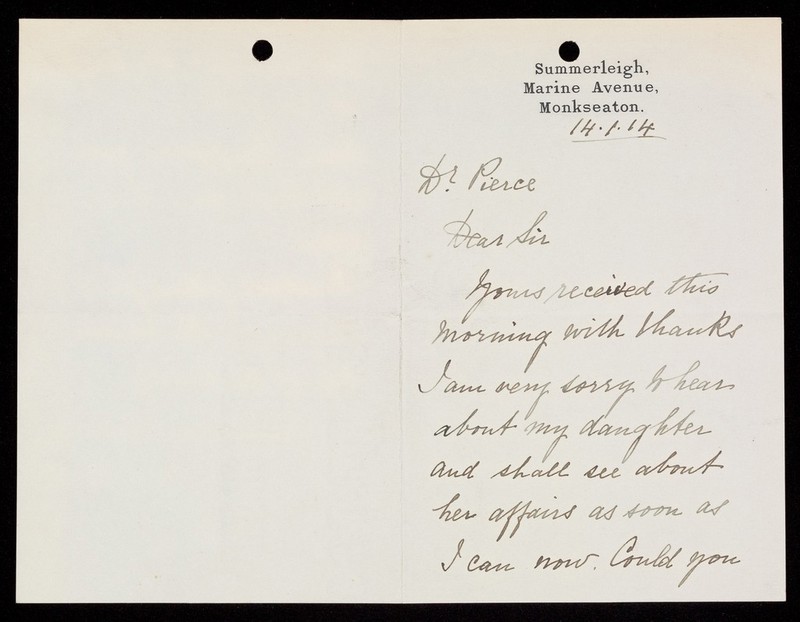 Summerleigh,
Marine Avenue,
Monkseaton.
14.1.14
Dr. Pierce
Dear Sir
Yours received this
morning with thanks
I am very sorry to hear
about my daughter
and shall see about
her affairs as soon as
I can now. Could you